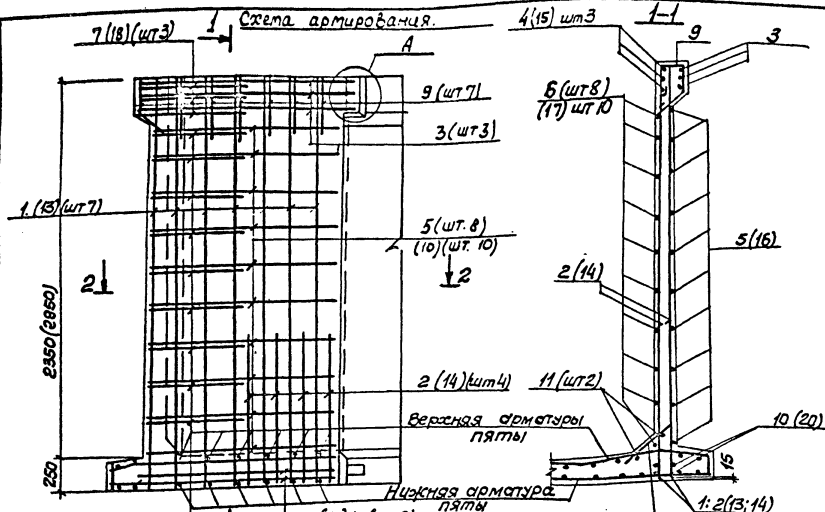 Схема армирования.
1
7(18)(шт3)
А
9(шт7)
3(шт3)
1.(13)(шт7)
5(шт.8)
(10)(шт.10)
2
2
2350(2860)
2(14)(шт4)
Верхняя арматуры
пяты
250
Нижняя арматура
пяты
1-1
4(15) шт3
9
3
6(шт8)
(17) шт10
5(16)
2(14)
11(шт2)
10(20)
15
1:2(13;14)